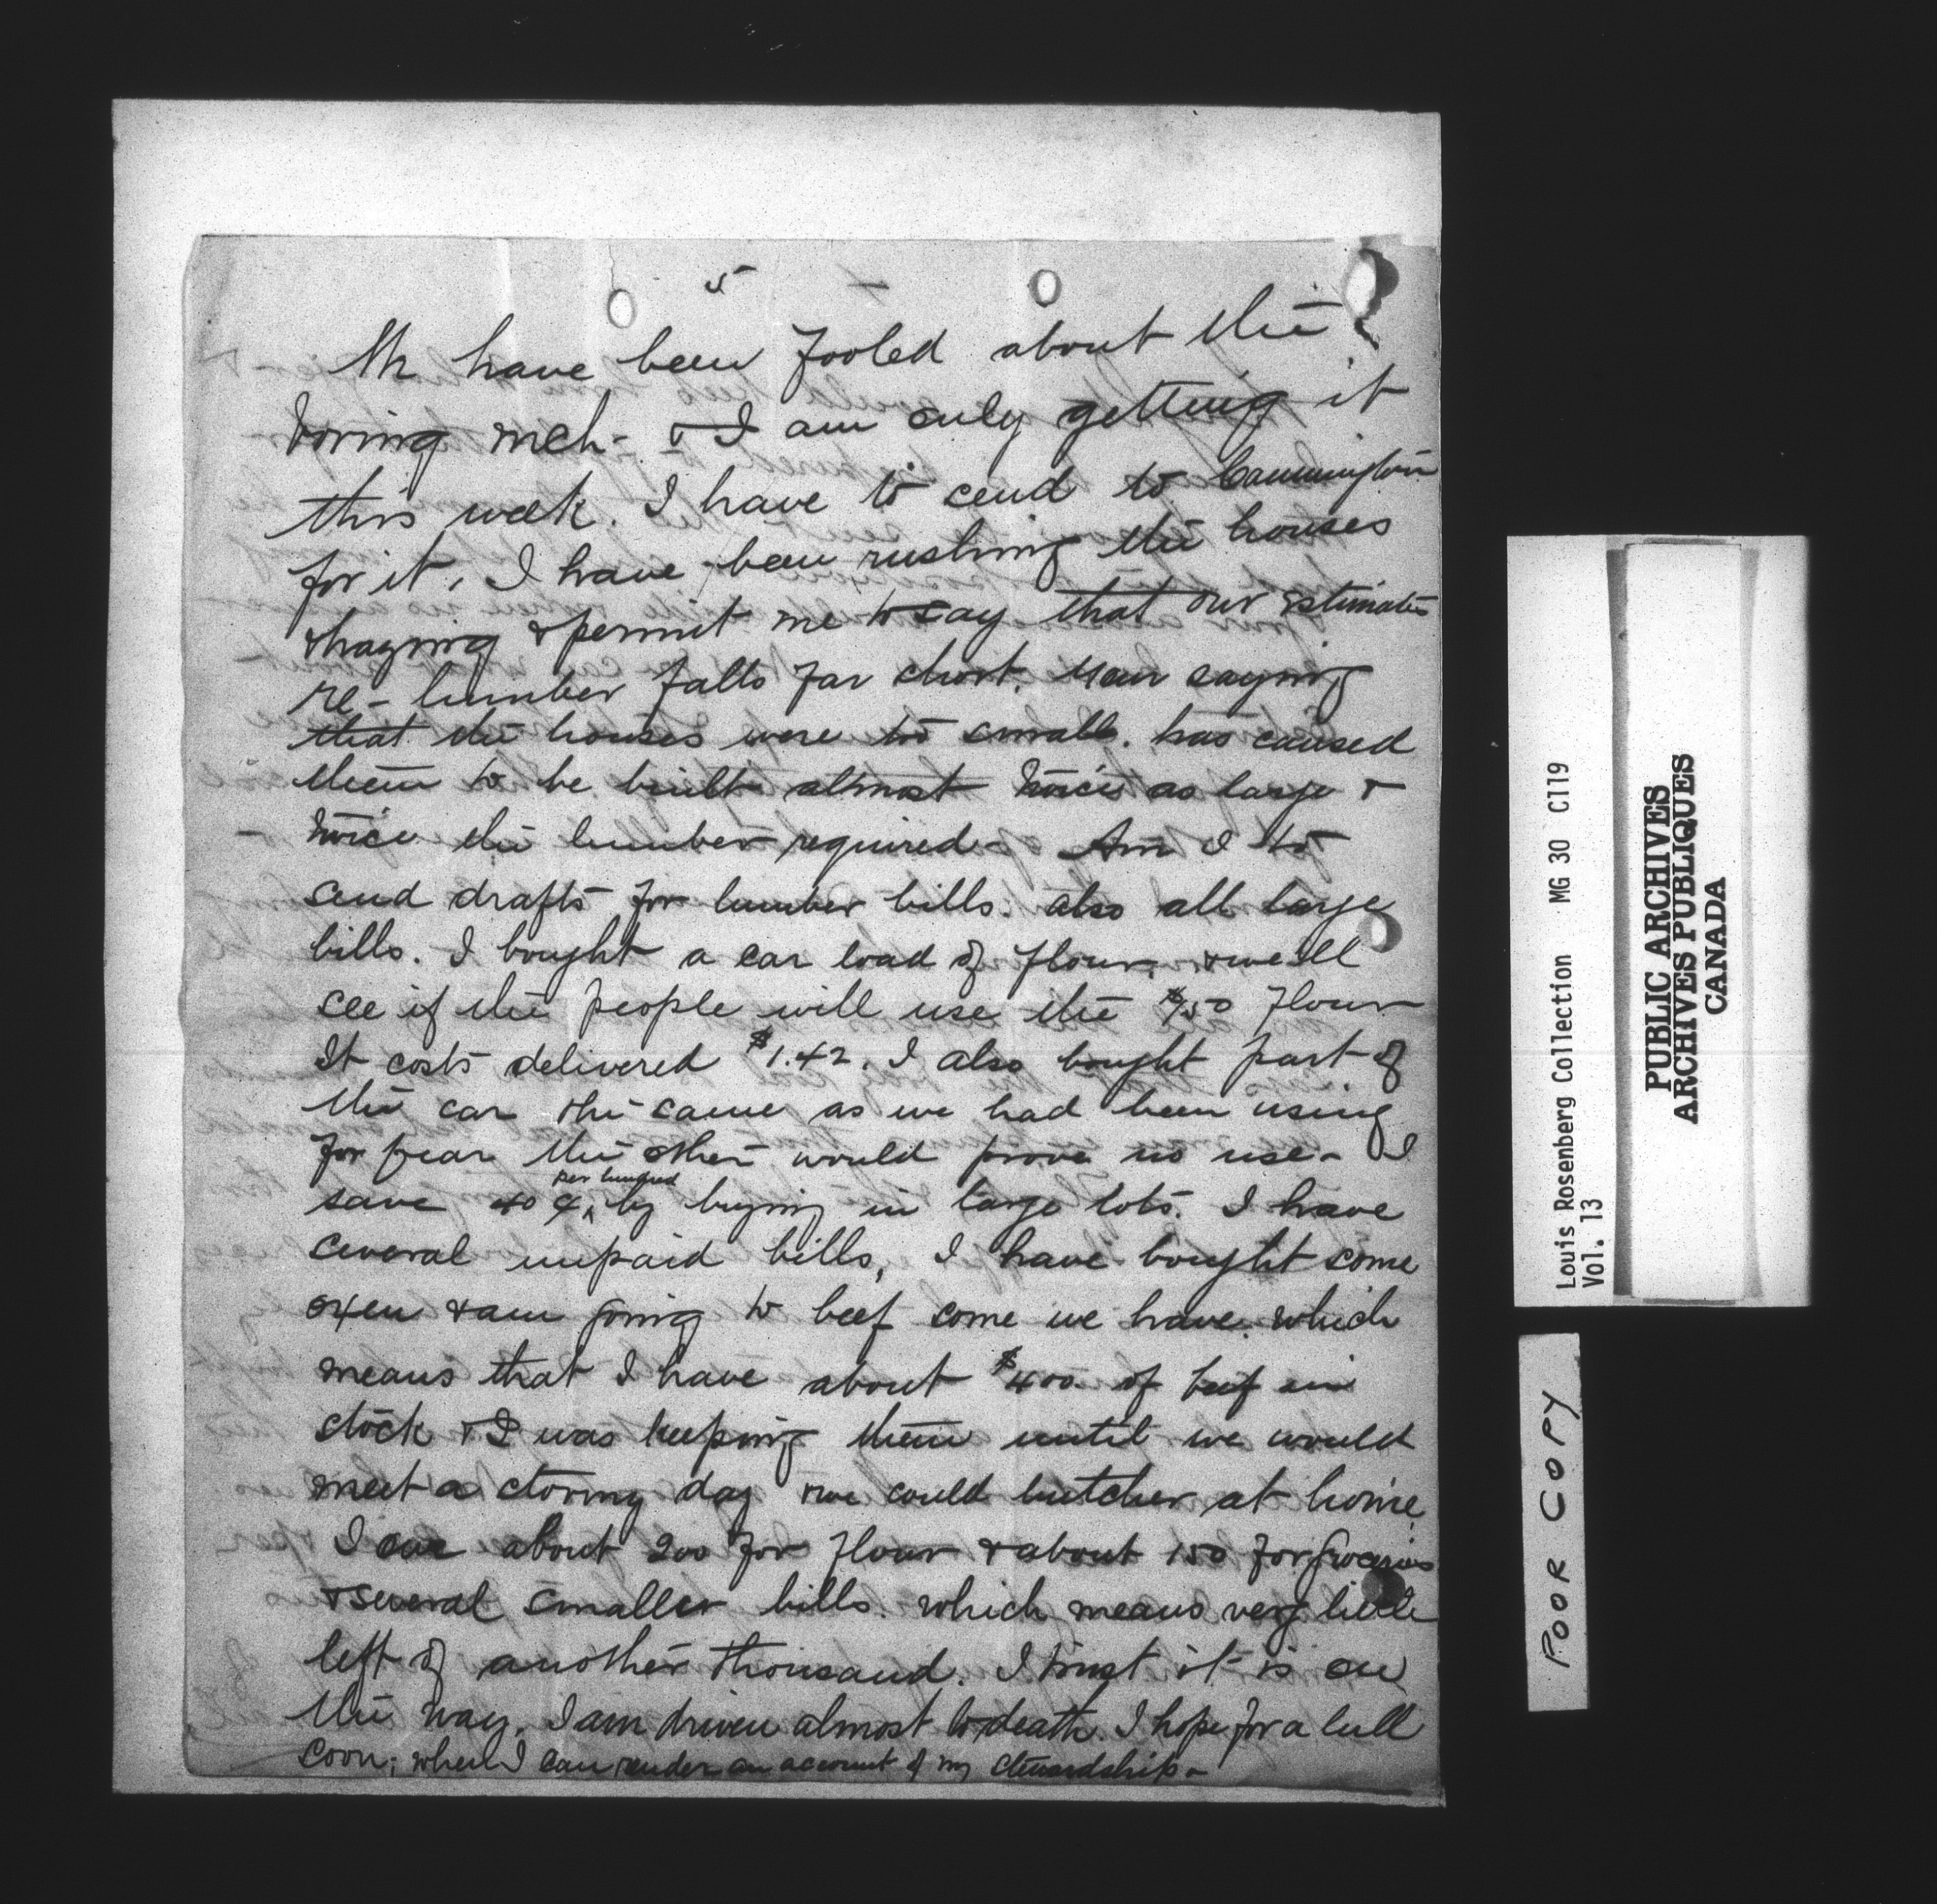 5
We have been fooled about the
boring mch- & I am only getting it
this week. I have to send to Cannington
for it, I have been rushing the houses
& haying & permit me to say that our estimates
re- lumber falls far short. Your saying
that the houses were too small. has caused
them to be built almost twice as large &
twice the lumber required- Am I to
send drafts for lumber bills. also all large
bills. I bought a car load of flour, & we'll
see if the people will use the flour
It costs delivered $1.42. I also bought part of
the car the same as we had been using
for fear the other would prove no use- I
per hundred
save 40 ¢ by buying in large lots. I have
several unpaid bills, I have bought some
oxen & am going to beef some we have. which
means that I have about $400 of beef in
stock & I was keeping them until we would
meet a stormy day & we could butcher at home.
I owe about 200 for flour & about 150 for groceries
& several smaller bills. which means very little
left of another thousand. I trust it is on
the way. I am driven almost to death. I hope for a lull
soon; when I can render an account of my stewardship-
Louis Rosenberg Collection MG 30 C119
Vol. 13
PUBLIC ARCHIVES
ARCHIVES PUBLIQUES
CANADA
POOR COPY